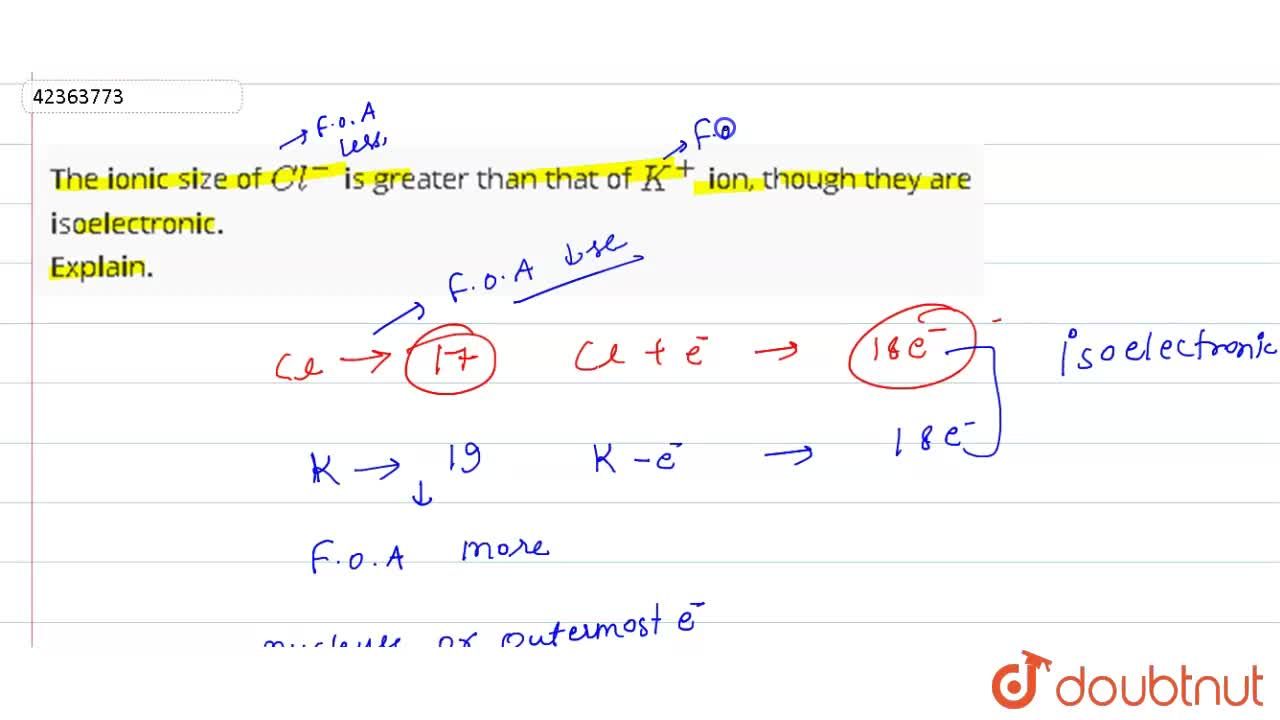 42363773
F.O.A
Less,
F.O
The ionic size of Cl⁻ is greater than that of K⁺ ion, though they are
isoelectronic.
Explain.
F.O.A ↓se
Cl → 17 Cl + e⁻ → 18e⁻ isoelectronic
K → 19 K - e⁻ → 18e⁻
F.O.A more
nucleus or outermost e⁻
doubtnut